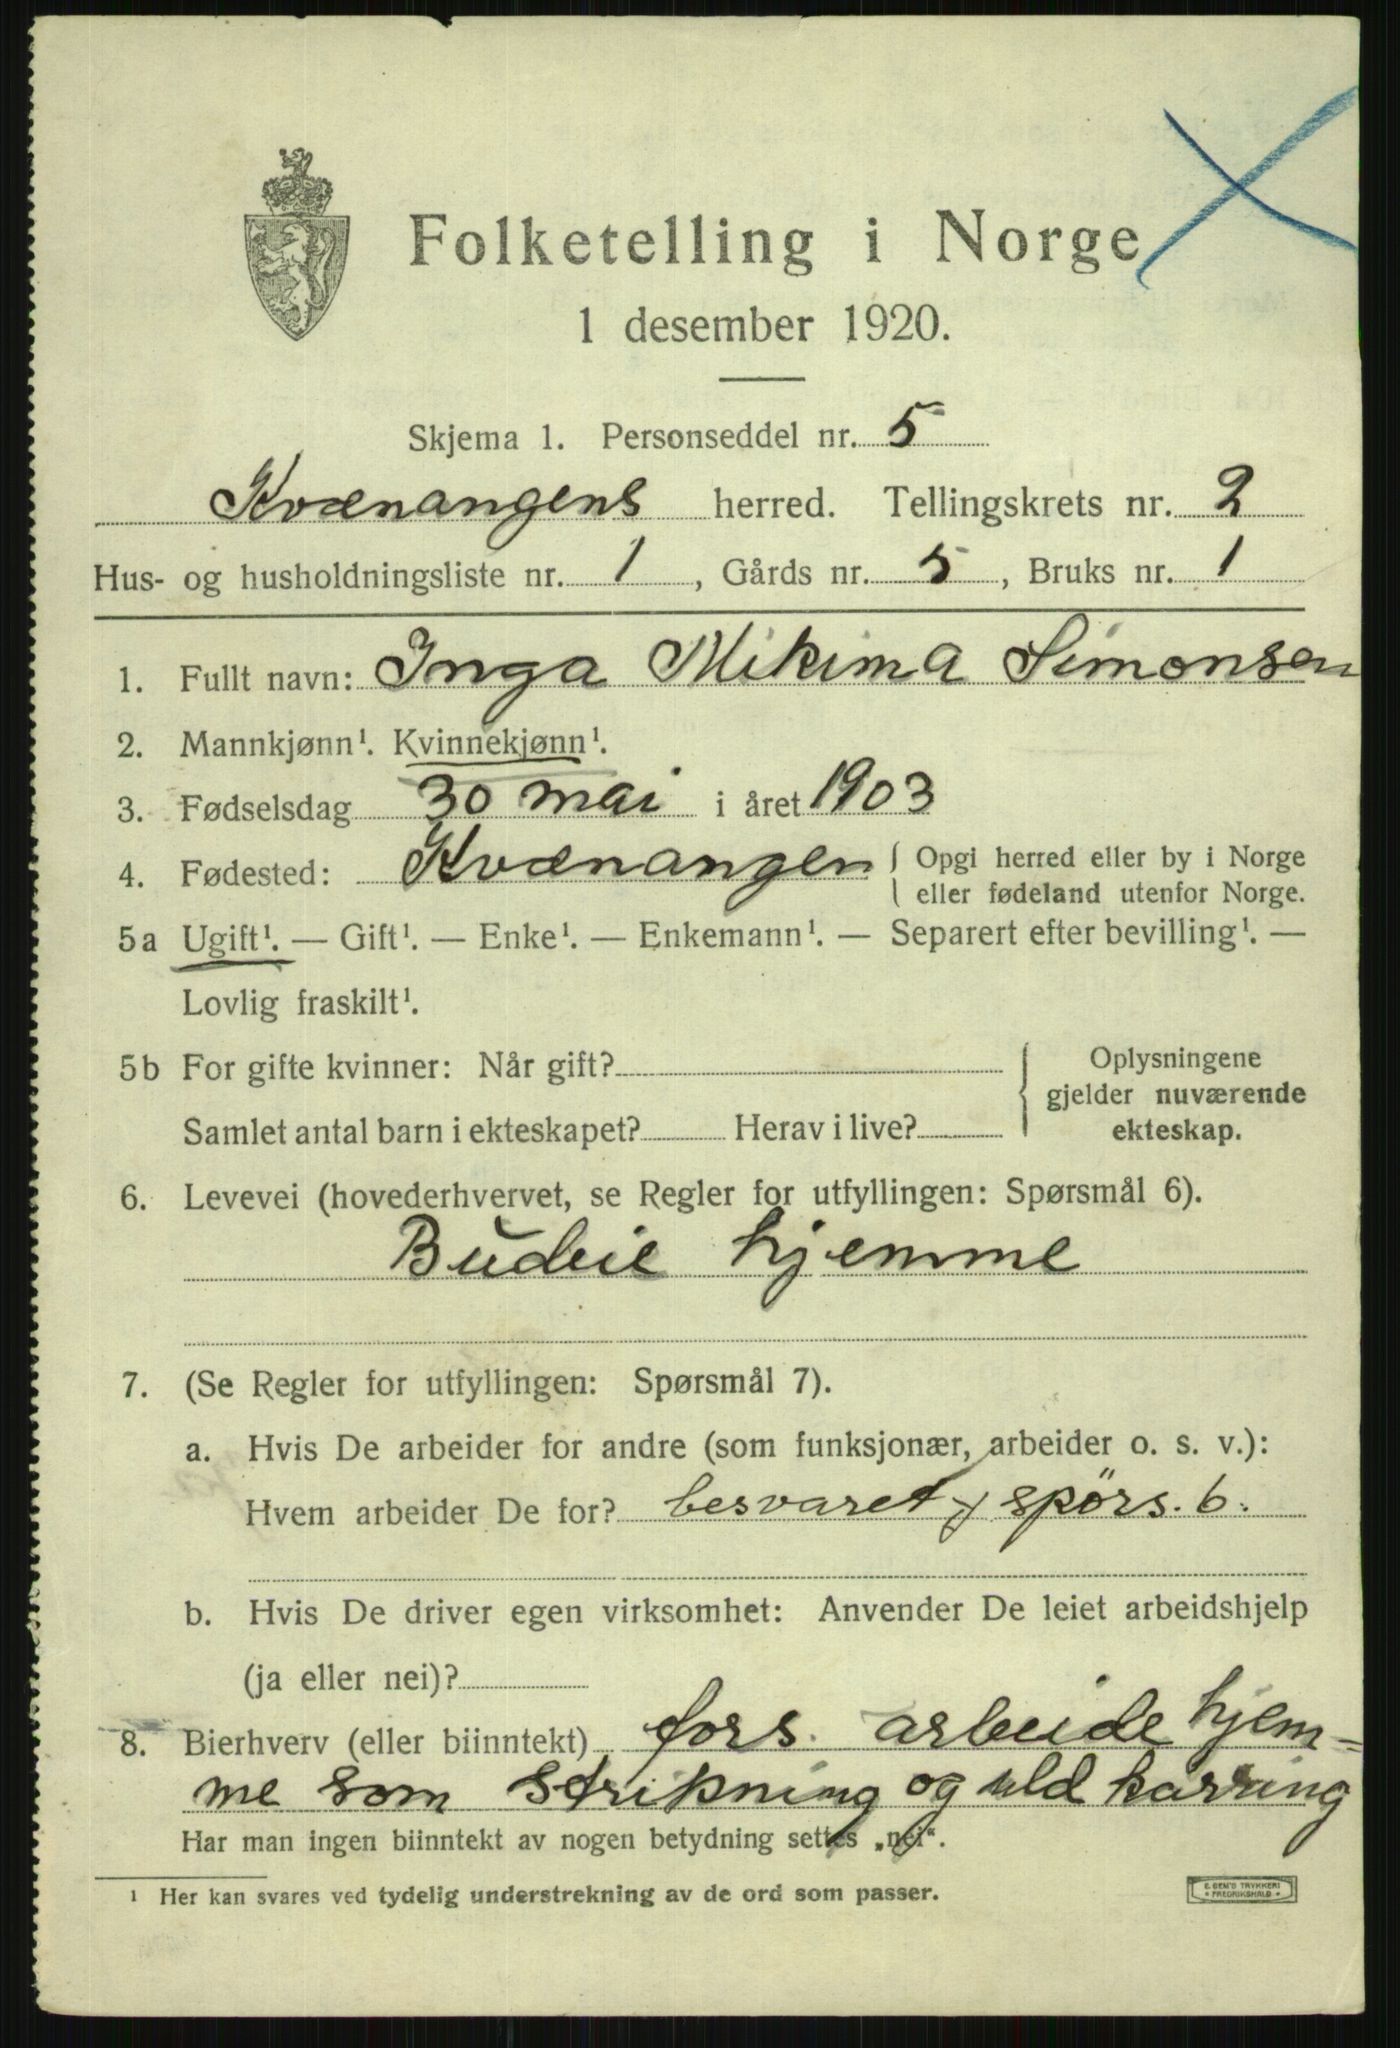 Folketelling i Norge
1 desember 1920.
Skjema 1. Personseddel nr. 5
Kvænangens herred. Tellingskrets nr. 2
Hus- og husholdningsliste nr. 1, Gårds nr. 5, Bruks nr. 1
1. Fullt navn: Inga Mikima Simonsen
2. Mannkjønn¹. Kvinnekjønn¹.
3. Fødselsdag 30 mai i året 1903
4. Fødested: Kvænangen { Opgi herred eller by i Norge
eller fødeland utenfor Norge.
5a Ugift¹. — Gift¹. — Enke¹. — Enkemann¹. — Separert efter bevilling¹. —
Lovlig fraskilt¹.
5b For gifte kvinner: Når gift? { Oplysningene
gjelder nuværende
Samlet antal barn i ekteskapet? Herav i live? ekteskap.
6. Levevei (hovederhvervet, se Regler for utfyllingen: Spørsmål 6).
Budeie hjemme
7. (Se Regler for utfyllingen: Spørsmål 7).
a. Hvis De arbeider for andre (som funksjonær, arbeider o. s. v.):
Hvem arbeider De for? besvaret spörs. 6.
b. Hvis De driver egen virksomhet: Anvender De leiet arbeidshjelp
(ja eller nei)?
8. Bierhverv (eller biinntekt) fors. arbeide hjem=
me som strikning og uld karring
Har man ingen biinntekt av nogen betydning settes „nei".
¹ Her kan svares ved tydelig understrekning av de ord som passer.
E. SEM'S TRYKKERI
FREDRIKSHALD